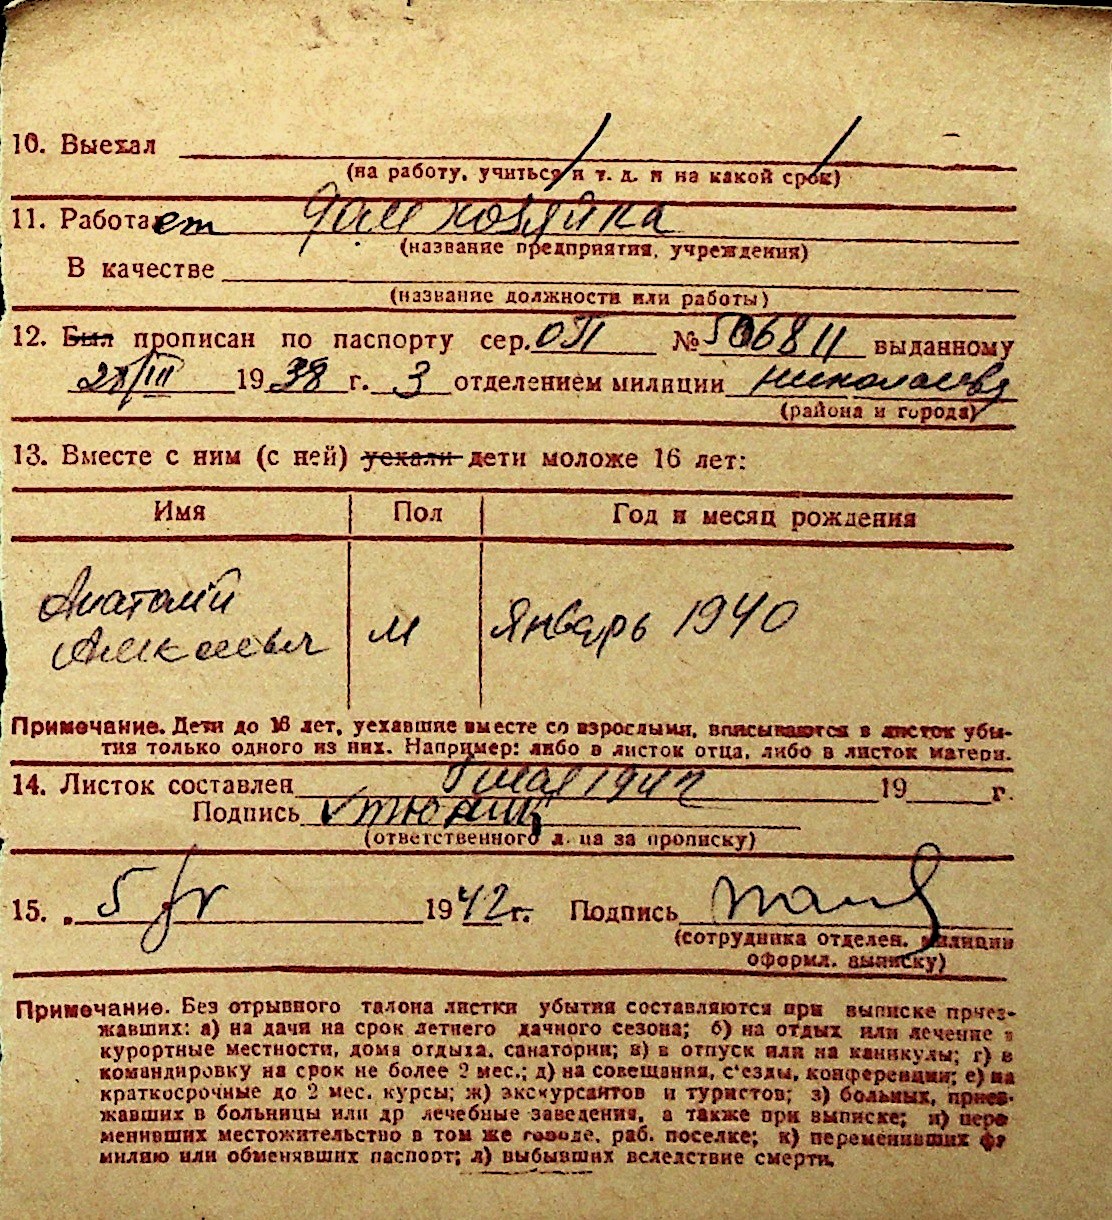 10. Выехал
(на работу, учиться и т. д. и на какой срок)
11. Работает Дом хозяйка
(название предприятия, учреждения)
В качестве
(название должности или работы)
12. Был прописан по паспорту сер. ОП № 506811 выданному
28/III 1938 г. 3 отделением милиции Николаева
(района и города)
13. Вместе с ним (с ней) уехали дети моложе 16 лет:
Имя Пол Год и месяц рождения
Анатолий
Алексеевич м Январь 1940
Примечание. Дети до 16 лет, уехавшие вместе со взрослыми, вписываются в листок убы-
тия только одного из них. Например: либо в листок отца, либо в листок матери.
14. Листок составлен мая 1942 19 г.
Подпись
(ответственного лица за прописку)
15. 5/V 1942 г. Подпись
(сотрудника отделен. милиции
оформл. выписку)
Примечание. Без отрывного талона листки убытия составляются при выписке приез-
жавших: а) на дачи на срок летнего дачного сезона; б) на отдых или лечение в
курортные местности, дома отдыха, санатории; в) в отпуск или на каникулы; г) в
командировку на срок не более 2 мес.; д) на совещания, с'езды, конференции; е) на
краткосрочные до 2 мес. курсы; ж) экскурсантов и туристов; з) больных, приез-
жавших в больницы или др лечебные заведения, а также при выписке; и) пере
менивших местожительство в том же городе, раб. поселке; к) переменивших фа
милию или обменявших паспорт; л) выбывших вследствие смерти.